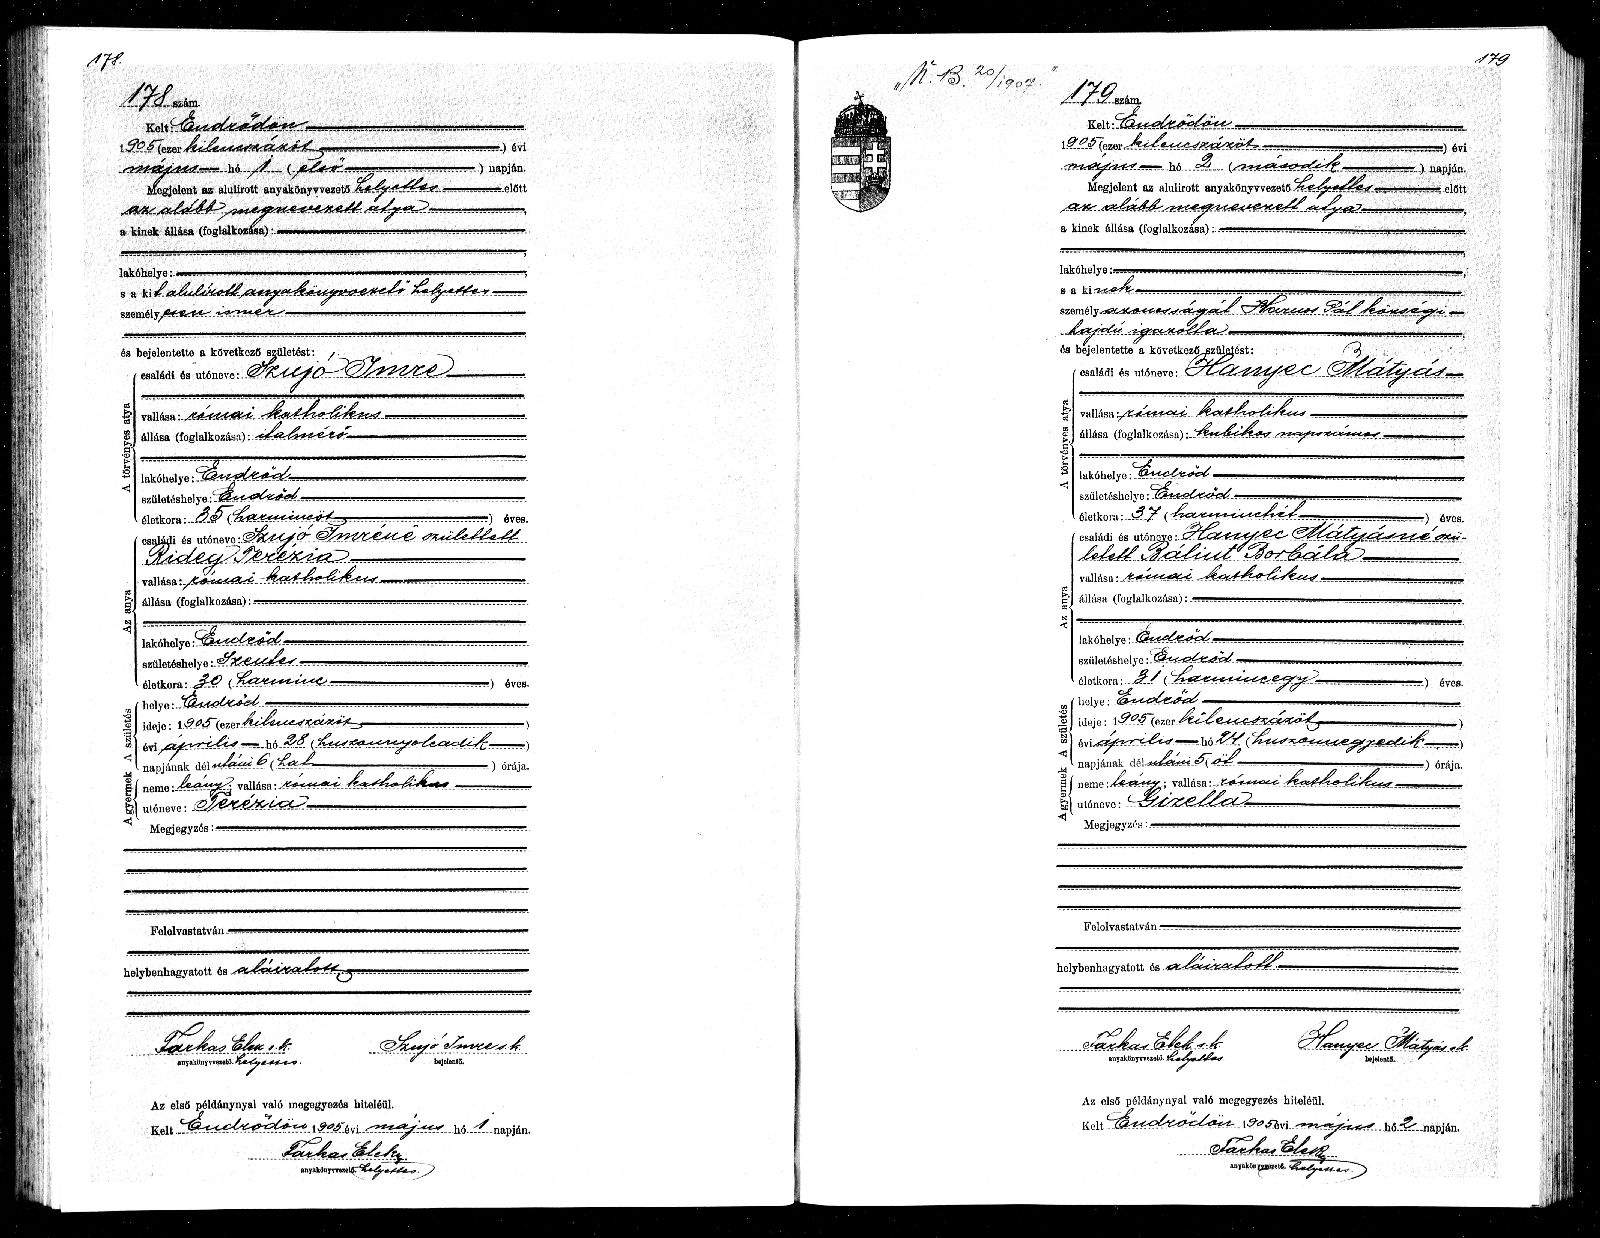 178.
178 szám.
Kelt: Endrődön
1905 (ezer kilencszázöt) évi
május hó 1 (első) napján.
Megjelent az alulirott anyakönyvvezető helyettes előtt
az alább megnevezett atya,
a kinek állása (foglalkozása):
lakóhelye:
s a kit alulirott anyakönyvvezető helyettes
személyesen ismer
és bejelentette a következő születést:
A törvényes atya
családi és utóneve: Szujó Imre
vallása: római katholikus
állása (foglalkozása): italmérő
lakóhelye: Endrőd
születéshelye: Endrőd
életkora: 35 (harmincöt) éves.
Az anya
családi és utóneve: Szujó Imréné született
Rideg Terézia
vallása: római katholikus
állása (foglalkozása):
lakóhelye: Endrőd
születéshelye: Szentes
életkora: 30 (harminc) éves.
A születés
helye: Endrőd
ideje: 1905 (ezer kilencszázöt)
évi április hó 28 (huszonnyolcadik)
napjának délutáni 6 (hat) órája.
A gyermek
neme: leány; vallása: római katholikus
utóneve: Terézia
Megjegyzés:
Felolvastatván
helybenhagyatott és aláiratott
Farkas Elek s.k. Szujó Imre s.k.
anyakönyvvezető. helyettes bejelentő.
Az első példánynyal való megegyezés hiteléül.
Kelt Endrődön 1905 évi május hó 1 napján.
Farkas Elek
anyakönyvvezető. helyettes
179
"N. B. 20/1907."
179 szám.
Kelt: Endrődön
1905 (ezer kilencszázöt) évi
május hó 2 (második) napján.
Megjelent az alulirott anyakönyvvezető helyettes előtt
az alább megnevezett atya,
a kinek állása (foglalkozása):
lakóhelye:
s a kinek
személyazonosságát Harnos Pál községi
hajdú igazolta
és bejelentette a következő születést:
A törvényes atya
családi és utóneve: Hanyec Mátyás
vallása: római katholikus
állása (foglalkozása): kubikos napszámos
lakóhelye: Endrőd
születéshelye: Endrőd
életkora: 37 (harminchét) éves.
Az anya
családi és utóneve: Hanyec Mátyásné szü-
letett Bálint Borbála
vallása: római katholikus
állása (foglalkozása):
lakóhelye: Endrőd
születéshelye: Endrőd
életkora: 31 (harmincegy) éves.
A születés
helye: Endrőd
ideje: 1905 (ezer kilencszázöt)
évi április hó 24 (huszonnegyedik)
napjának délutáni 5 (öt) órája.
A gyermek
neme: leány; vallása: római katholikus
utóneve: Gizella
Megjegyzés:
Felolvastatván
helybenhagyatott és aláiratott.
Farkas Elek s.k. Hanyec Mátyás s.k.
anyakönyvvezető. helyettes bejelentő.
Az első példánynyal való megegyezés hiteléül.
Kelt Endrődön 1905 évi május hó 2 napján.
Farkas Elek
anyakönyvvezető. helyettes